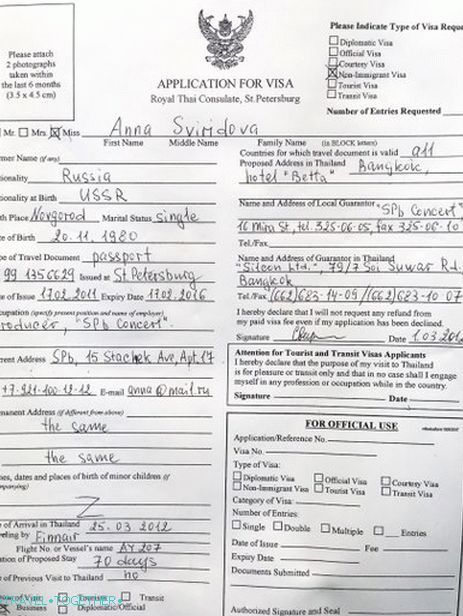 Please attach
2 photographs
taken within
the last 6 months
(3.5 x 4.5 cm)
APPLICATION FOR VISA
Royal Thai Consulate, St.Petersburg
Please Indicate Type of Visa Reque
Diplomatic Visa
Official Visa
Courtesy Visa
Non-Immigrant Visa
Tourist Visa
Transit Visa
Number of Entries Requested
Mr. Mrs. Miss Anna Sviridova
First Name Middle Name Family Name (in BLOCK letters)
rmer Name (if any)
ionality Russia
ionality at Birth USSR
th Place Novgorod Marital Status single
te of Birth 20.11.1980
pe of Travel Document passport
99 1356629 Issued at St.Petersburg
te of Issue 17.02.2011 Expiry Date 17.02.2016
cupation (specify present position and name of employer)
roducer, "SPb Concert".
rrent Address SPb, 15 Stachek Ave, Apt.17
+7-921-100-12-12 E-mail anna@mail.ru
manent Address (if different from above)
the same
the same
mes, dates and places of birth of minor children (if
ompanying)
Z
te of Arrival in Thailand 25.03 2012
veling by Finnair
Flight No. or Vessel's name AY 207
ration of Proposed Stay 70 days
te of Previous Visit to Thailand no
of Visit Tourism Transit
Business Diplomatic/Official
Countries for which travel document is valid all
Proposed Address in Thailand Bangkok,
hotel "Betta"
Name and Address of Local Guarantor "SPb Concert"
16 Mira St, tel. 325-06-05, fax 325-06-10
Tel./Fax
Name and Address of Guarantor in Thailand
"Silcon Ltd.", 79/7 Soi Suwar Rd.
Bangkok
Tel./Fax (662)683-14-09 /(662)683-10 07
I hereby declare that I will not request any refund from
my paid visa fee even if my application has been declined.
Signature Date 1.03.2012
Attention for Tourist and Transit Visas Applicants
I hereby declare that the purpose of my visit to Thailand
is for pleasure or transit only and that in no case shall I engage
myself in any profession or occupation while in the country.
Signature Date
FOR OFFICIAL USE
Application/Reference No.
Visa No.
Type of Visa:
Diplomatic Visa Official Visa Courtesy Visa
Non-Immigrant Visa Tourist Visa Transit Visa
Category of Visa:
Number of Entries:
Single Double Multiple Entries
Date of Issue Fee
Expiry Date
Documents Submitted
Authorized Signature and Seal